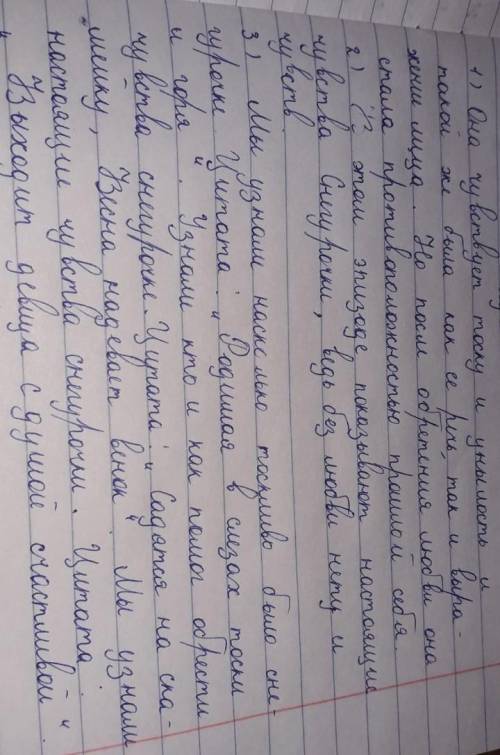 1) Она чувствует тоску и унылость и
такой же была как се речь так и выра-
жени лица. Но посли обретения любви она
стала противоположностью прошлой себя.
2) В этом эпизоде показывают настоящие
чувства Снигурочки, ведь без любви нету и
чувств.
3) Мы узнали наскалько тоскливо было сне-
гурочке Цитата: "Родимая в слезах тоски
и горя". Узнали кто и как помог обрести
чувства снигурочке. Цитата: "Садятся на ска-
мейку, Весна надевает венок" Мы узнали
настоящии чувства снигурочки. Цитата:
"Выходит девица с душой счастливой".